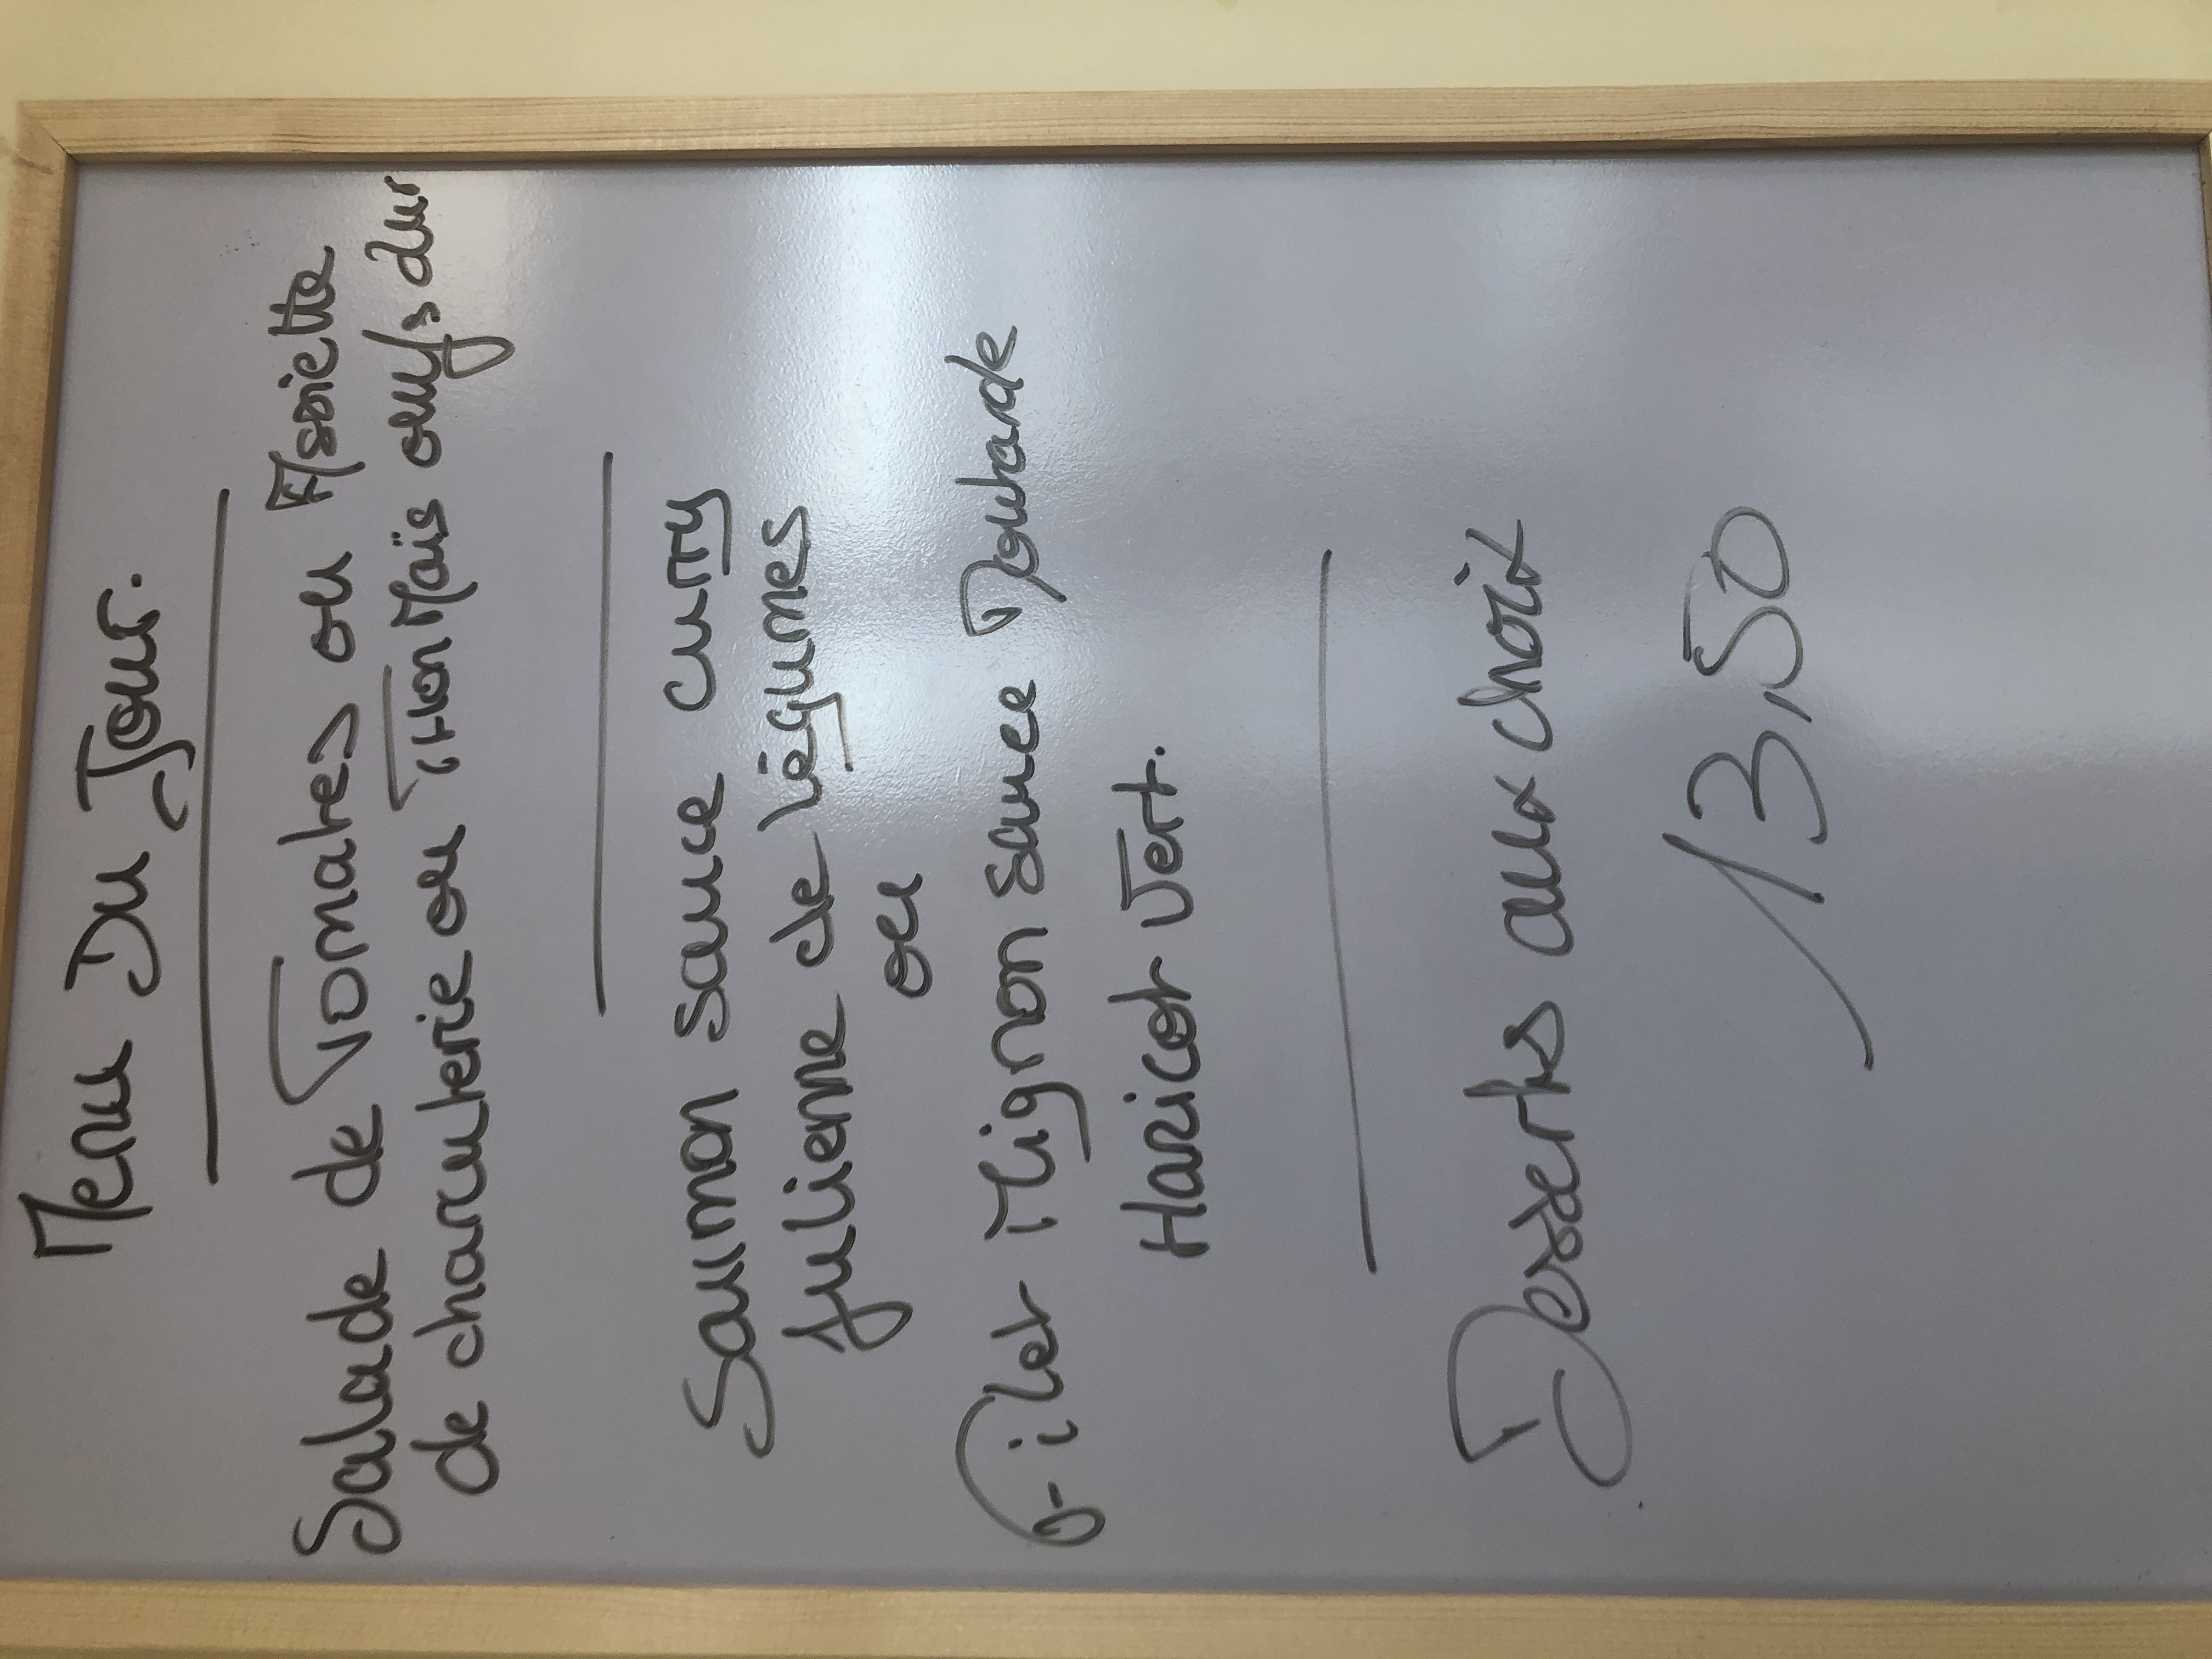 Menu Du Jour.
Salade de Tomates ou Assiette
de charcuterie ou Thon Maïs oeufs dur
Saumon sauce curry
Julienne de légumes
ou
Filet Mignon Sauce Moutarde
Haricot Vert.
Desserts aux choix
13,50